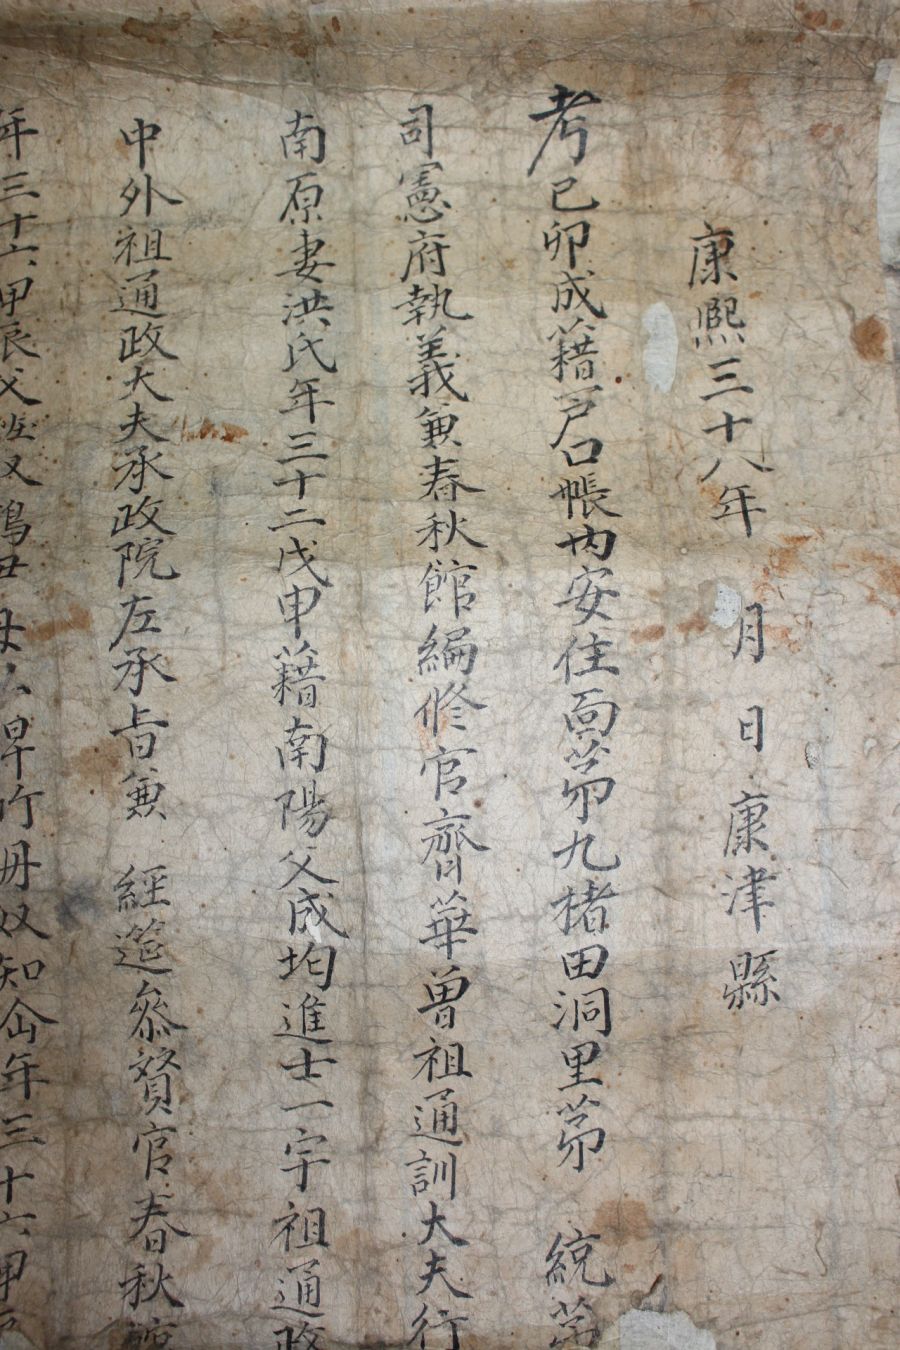 康熙三十八年 月 日 康津縣
考己卯成籍戶口帳內安住面苐九楮田洞里苐 統苐
司憲府執義兼春秋館編修官齊華曾祖通訓大夫行
南原妻洪氏年三十二戊申籍南陽父成均進士一宇祖通政
中外祖通政大夫承政院左承旨兼 經筵叅贊官春秋館
年三十六甲辰父 奴知 年三十六甲辰